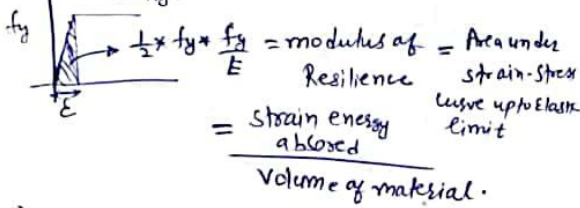 fy
1/2 * fy * fy/E = modulus of Resilience = Area under strain-stress curve upto Elastic limit
ε
= strain energy absored / Volume of material.